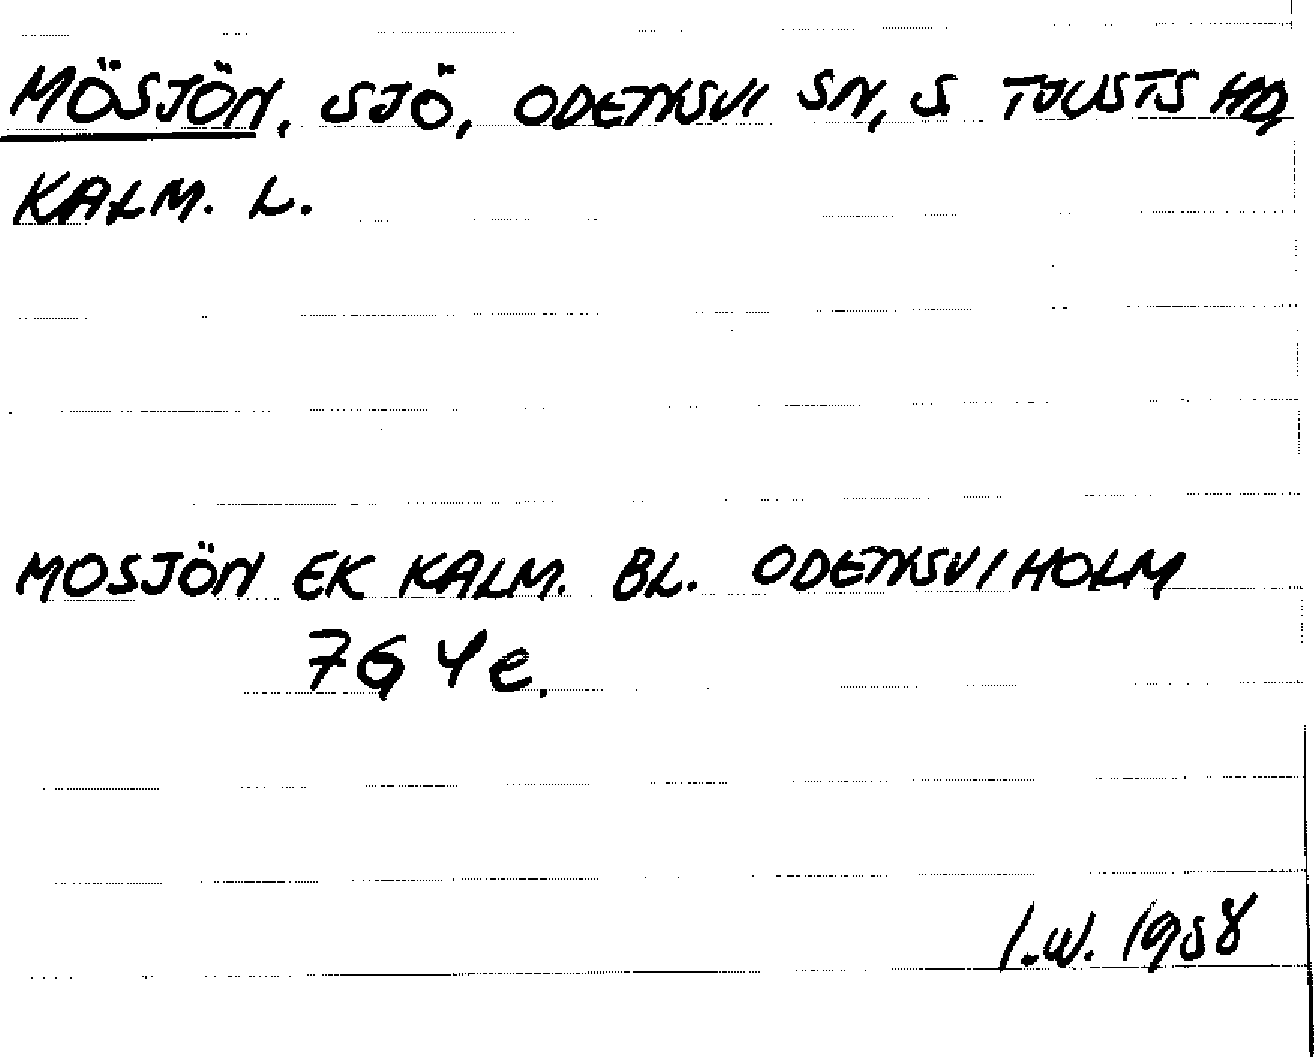 MÖSJÖN, SJÖ, ODENSVI SN, S TJUSTS HD,
KALM. L.
MOSJÖN EK KALM. BL. ODENSVIHOLM
7G 4e.
I.W. 1958